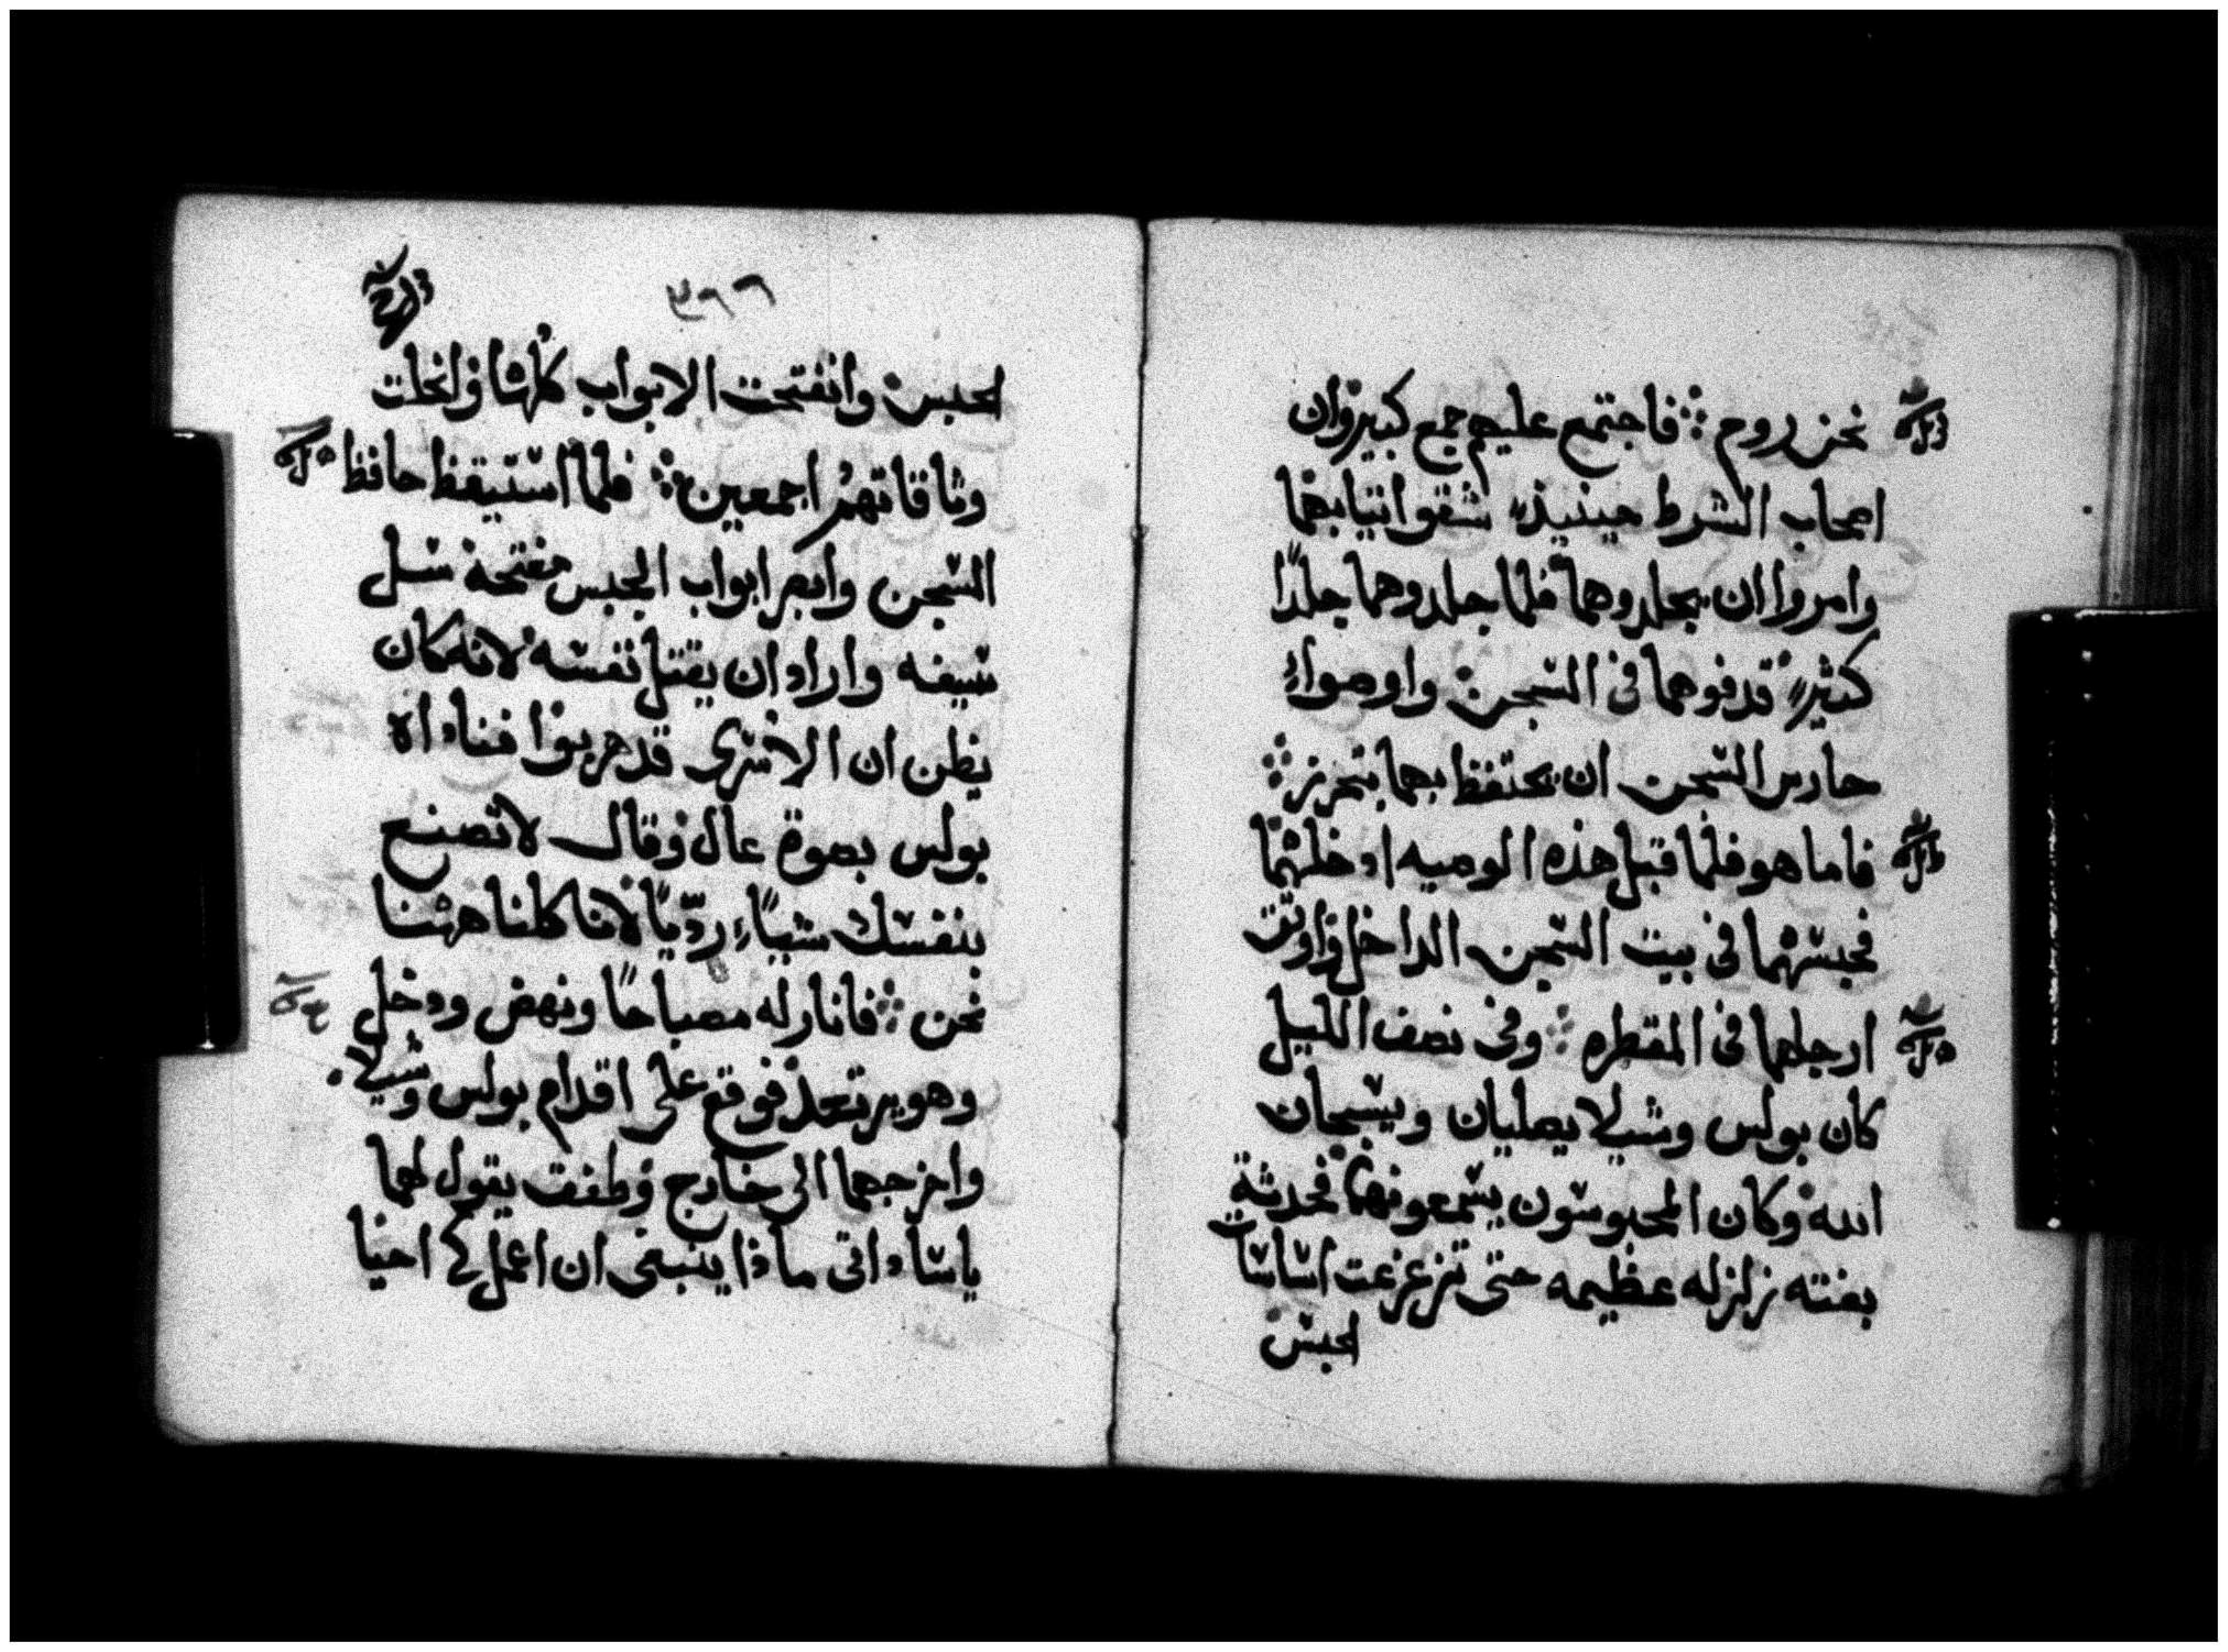 نحن روم ؞ فاجتمع عليهم جمع كبير وان
اصحاب الشرط حينيذ شقو اتيابهما
وامروا ان يجلدوهما فلما جلدوهما جلدًا
كثير قدفوهما فى السجن واوصوا
حارس السجن ان يحتفظ بهما بتحرز ؞
فاما هو فلما قبل هذه الوصيه ادخلهما
فحبسهما فى بيت السجن الداخل واوتق
ارجلهما فى المقطره ؞ وفى نصف الليل
كان بولس وشيلا يصليان ويسبحان
الله وكان المحبوسون يسمعونهما فحدثة
بغته زلزله عظيمه حتى تزعزعت اساسات
لحبس
٣٩٩
لحبس وانفتحت الابواب كلها وانحلت
وثاقاتهم اجمعين ؞ فلما استيقظ حافظ
السجن وابصر ابواب الحبس مفتحة سل
سيفه واراد ان يقتل نفسه لانه كان
يظن ان الاسرى قد هربوا فناداه
بولس بصوة عال وقال لا تصنع
بنفسك شياء رديًا لاننا كلنا ههنا
نحن ؞ فانار له مصباحًا ونهض ودخل
وهو يرتعد فوقع على اقدام بولس وشيلا
واخرجهما الى خارج وطفق يقول لهما
يا ساداتى ماذا ينبغى ان اعمل كى احيا